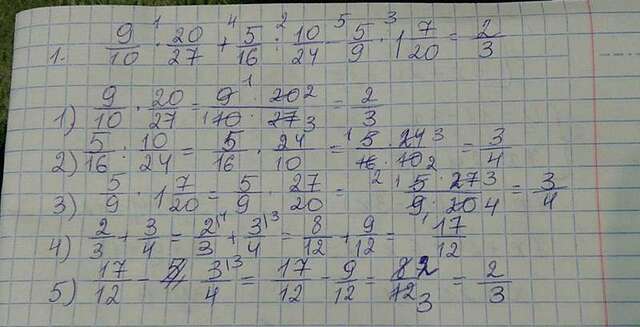 1. 9/10 · 20/27 + 5/16 : 10/24 - 5/9 · 1 7/20 = 2/3
1) 9/10 · 20/27 = 9 · 20/10 · 27 = 2/3
2) 5/16 : 10/24 = 5/16 · 24/10 = 5 · 24/16 · 10 = 3/4
3) 5/9 · 1 7/20 = 5/9 · 27/20 = 5 · 27/9 · 20 = 3/4
4) 2/3 + 3/4 = 2/3 + 3/4 = 8/12 + 9/12 = 17/12
5) 17/12 - 3/4 = 17/12 - 9/12 = 8/12 = 2/3